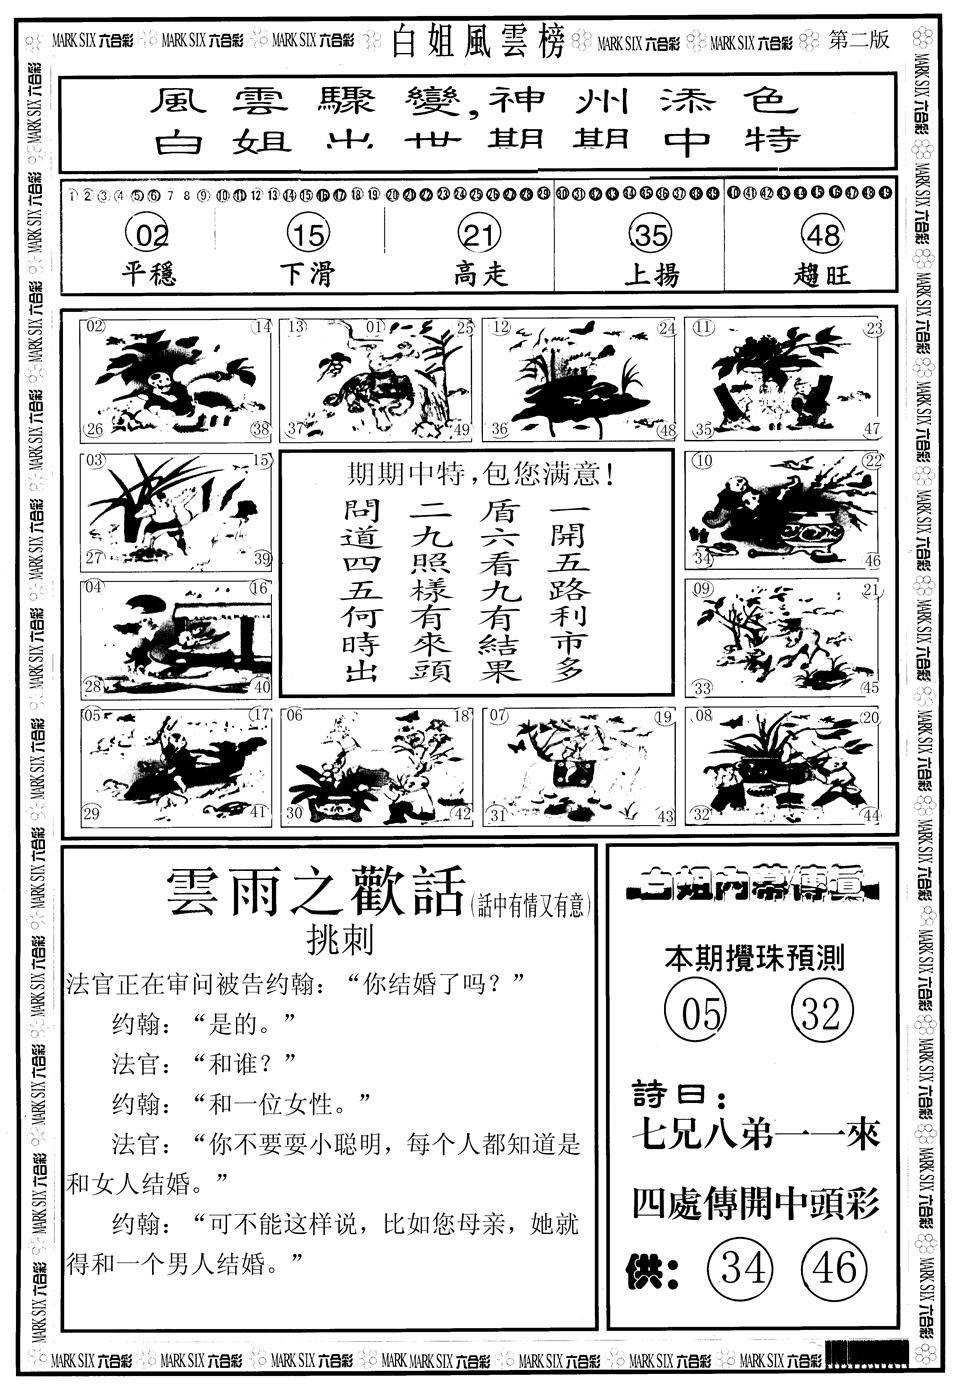 MARK SIX 六合彩 MARK SIX 六合彩 MARK SIX 六合彩 白姐風雲榜 MARK SIX 六合彩 MARK SIX 六合彩 第二版
風雲驟變,神州添色
白姐出世期期中特
1 2 3 4 5 6 7 8 9 10 11 12 13 14 15 16 17 18 19 20 21 22 23 24 25 26 27 28 29 30 31 32 33 34 35 36 37 38 39 40 41 42 43 44 45 46 47 48 49
02 15 21 35 48
平穩 下滑 高走 上揚 趨旺
02 14 13 01 25 12 24 11 23
26 38 37 49 36 48 35 47
03 15 10 22
27 39 34 46
04 16 09 21
28 40 33 45
05 17 06 18 07 19 08 20
29 41 30 42 31 43 32 44
期期中特,包您满意!
一開五路利市多
盾六看九有結果
二九照樣有來頭
問道四五何時出
雲雨之歡話(話中有情又有意)
挑刺
法官正在审问被告约翰:“你结婚了吗?”
约翰:“是的。”
法官:“和谁?”
约翰:“和一位女性。”
法官:“你不要耍小聪明,每个人都知道是
和女人结婚。”
约翰:“可不能这样说,比如您母亲,她就
得和一个男人结婚。”
白姐内幕傳真
本期攪珠預測
05 32
詩曰:
七兄八弟一一來
四處傳開中頭彩
供: 34 46
MARK SIX 六合彩 MARK SIX 六合彩 MARK SIX 六合彩 MARK MARK SIX 六合彩 MARK SIX 六合彩 MARK SIX 六合彩 MARK SIX 六合彩